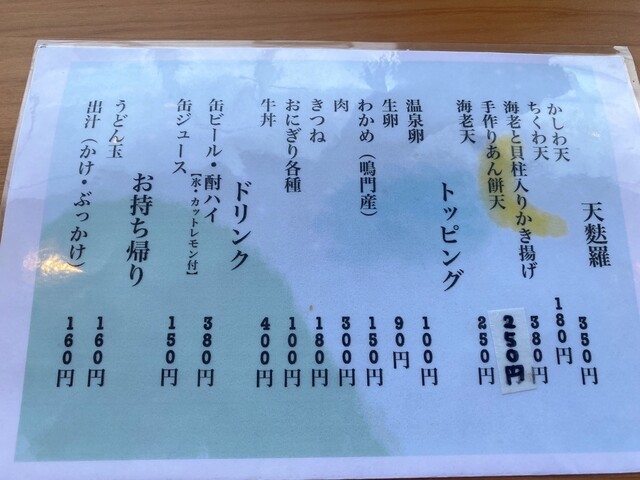 天麩羅
かしわ天 350円
ちくわ天 180円
海老と貝柱入りかき揚げ 380円
手作りあん餅天 250円
海老天 250円
トッピング
温泉卵 100円
生卵 90円
わかめ（鳴門産） 150円
肉 300円
きつね 180円
おにぎり各種 100円
牛丼 400円
ドリンク
缶ビール・酎ハイ 380円
［氷・カットレモン付］
缶ジュース 150円
お持ち帰り
うどん玉 160円
出汁（かけ・ぶっかけ） 160円